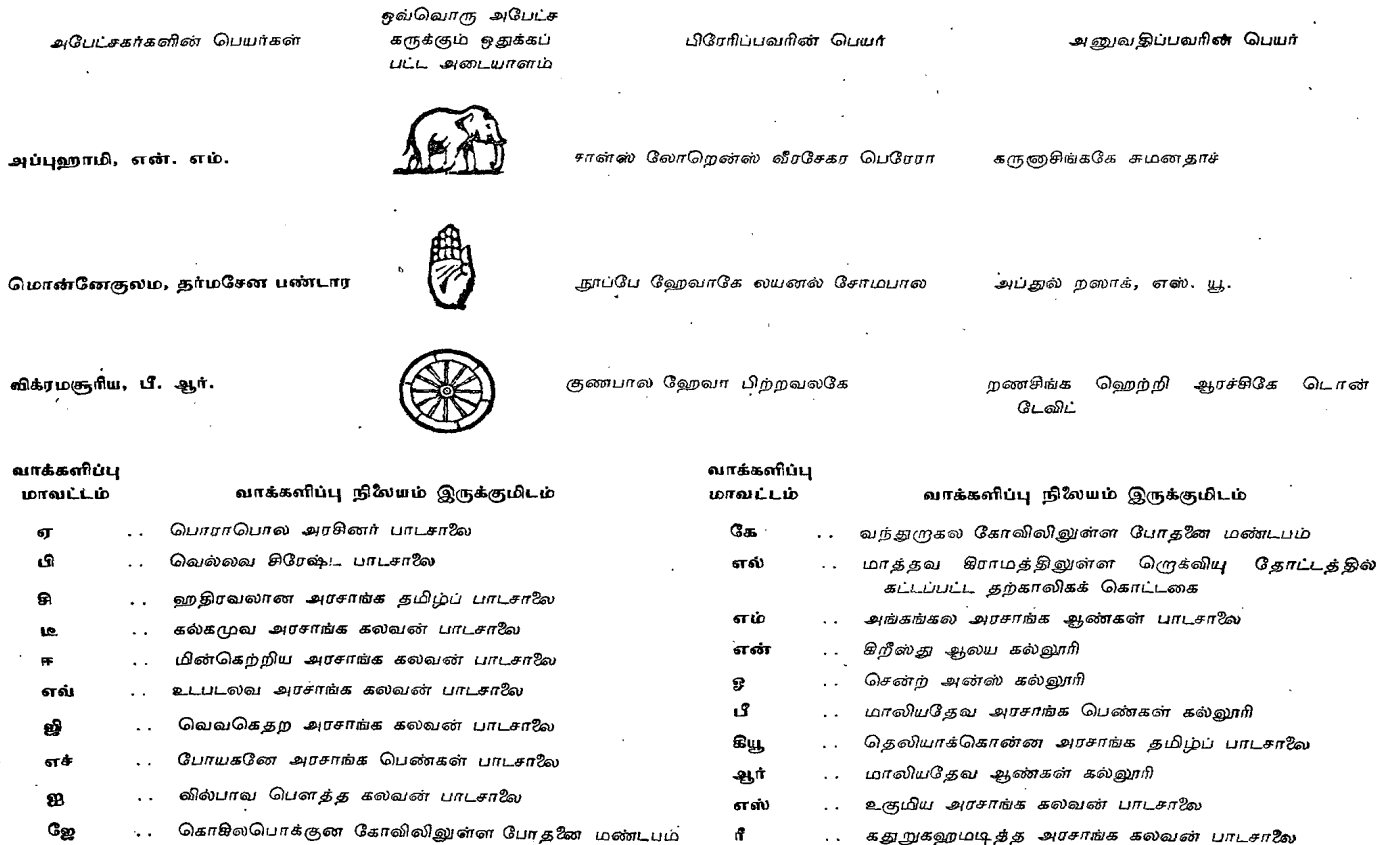 அபேட்சகர்களின் பெயர்கள்
ஒவ்வொரு அபேட்ச
கருக்கும் ஒதுக்கப்
பட்ட அடையாளம்
பிரேரிப்பவரின் பெயர்
அனுவதிப்பவரின் பெயர்
அப்புஹாமி, என். எம்.
சாள்ஸ் லோறென்ஸ் வீரசேகர பெரேரா
கருணாசிங்ககே சுமனதாச
மொன்னேகுலம, தர்மசேன பண்டார
நூப்பே ஹேவாகே லயனல் சோமபால
அப்துல் றஸாக், எஸ். யூ.
விக்ரமசூரிய, பீ. ஆர்.
குணபால ஹேவா பிற்றவலகே
றணசிங்க ஹெற்றி ஆரச்சிகே டொன்
டேவிட்
வாக்களிப்பு
மாவட்டம்
வாக்களிப்பு நிலையம் இருக்குமிடம்
ஏ .. பொராபொல அரசினர் பாடசாலை
பி .. வெல்லவ சிரேஷ்ட பாடசாலை
சி .. ஹதிரவலான அரசாங்க தமிழ்ப் பாடசாலை
டீ .. கல்கமுவ அரசாங்க கலவன் பாடசாலை
ஈ .. மின்கெற்றிய அரசாங்க கலவன் பாடசாலை
எவ் .. உடபடலவ அரசாங்க கலவன் பாடசாலை
ஜி .. வெவகெதற அரசாங்க கலவன் பாடசாலை
எச் .. போயகனே அரசாங்க பெண்கள் பாடசாலை
ஐ .. வில்பாவ பௌத்த கலவன் பாடசாலை
ஜே .. கொகிலபொக்குன கோவிலிலுள்ள போதனை மண்டபம்
வாக்களிப்பு
மாவட்டம்
வாக்களிப்பு நிலையம் இருக்குமிடம்
கே .. வந்துறாகல கோவிலிலுள்ள போதனை மண்டபம்
எல் .. மாத்தவ கிராமத்திலுள்ள றொக்வியு தோட்டத்தில்
கட்டப்பட்ட தற்காலிகக் கொட்டகை
எம் .. அங்கங்கல அரசாங்க ஆண்கள் பாடசாலை
என் .. கிறீஸ்து ஆலய கல்லூரி
ஓ .. சென்ற் அன்ஸ் கல்லூரி
பீ .. மாலியதேவ அரசாங்க பெண்கள் கல்லூரி
கியூ .. தெலியாக்கொன்ன அரசாங்க தமிழ்ப் பாடசாலை
ஆர் .. மாலியதேவ ஆண்கள் கல்லூரி
எஸ் .. உகுமிய அரசாங்க கலவன் பாடசாலை
ரீ .. கதுறுகஹமடித்த அரசாங்க கலவன் பாடசாலை